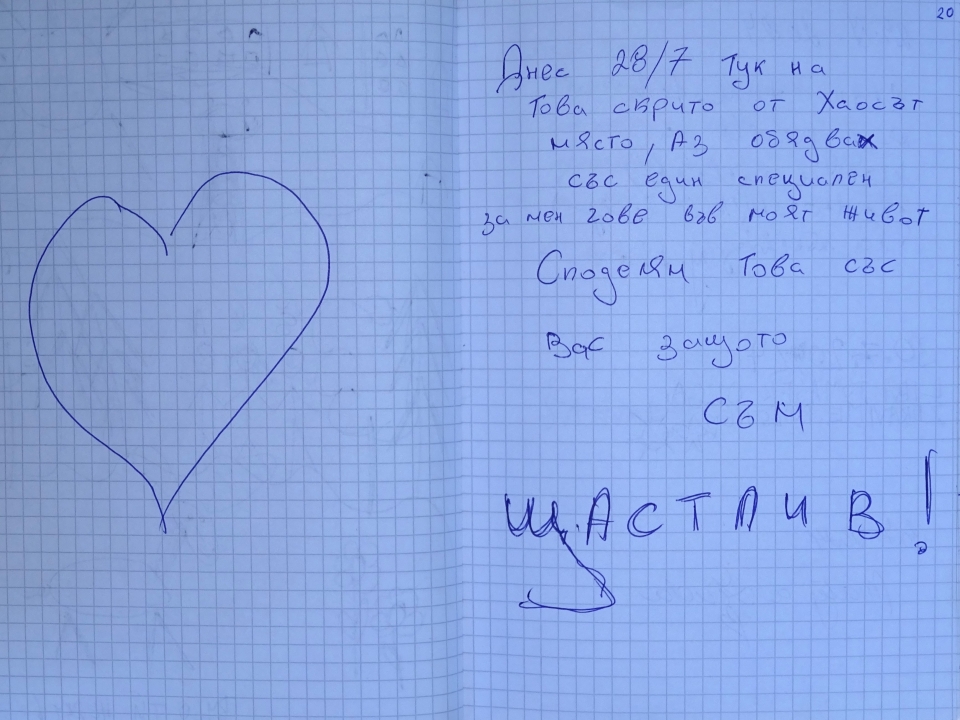 20
Днес 28/7 Тук на
Това скрито от Хаосът
място, Аз обядвах
със един специален
за мен гове във моят живот
Споделям Това със
Вас защото
СЪМ
ЩАСТЛИВ!